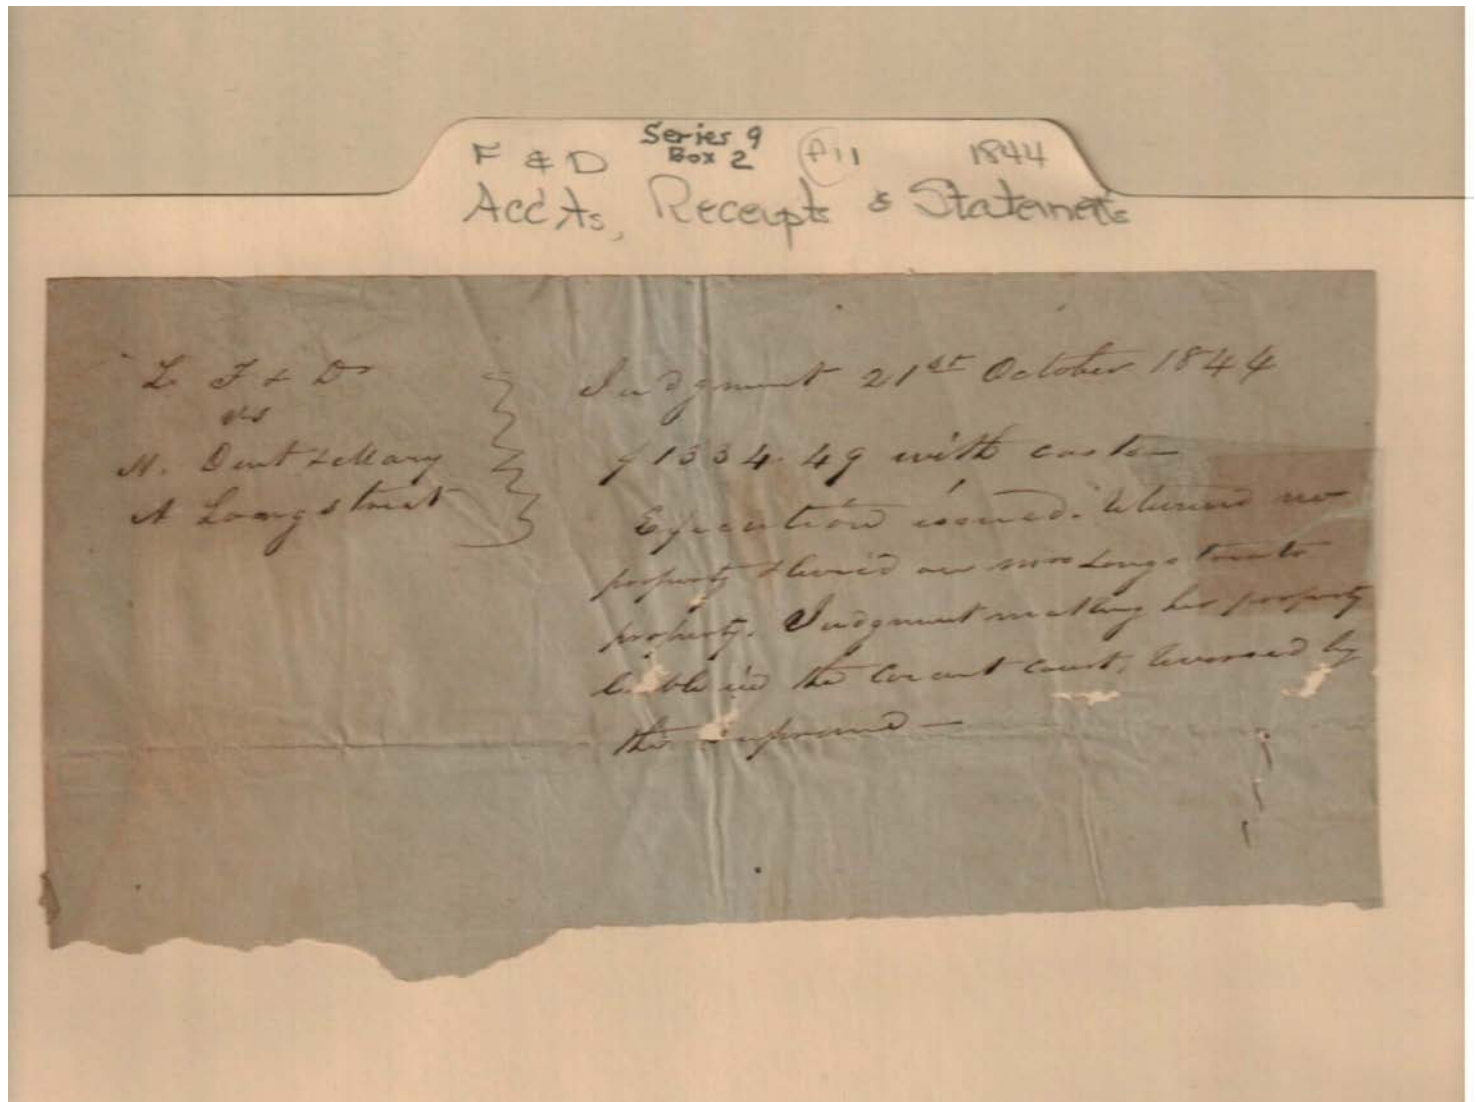 F & D Series 9 Box 2 f11 1844
Acc'ts, Receipts & Statements
L F & Do
vs
M. Dent & Mary
A Longstreet
Judgment 21st October 1844
$1334.49 with costs—
Execution issued. Returned no
property & levied on Mrs Longstreets
property. Judgment making her property
liable in the Circuit court, reversed by
the Supreme—